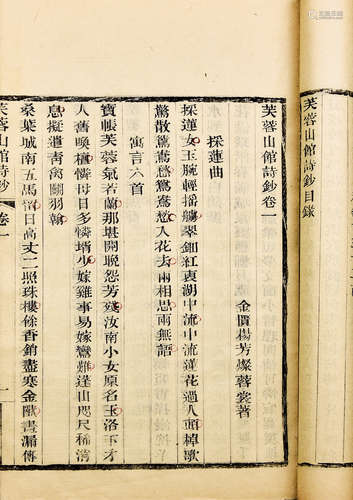 芙蓉山館詩鈔目錄
芙蓉山館詩鈔卷一
金匱楊芳燦蓉裳著
採蓮曲
採蓮女玉腕輕搖翠鈿紅湖中流中流蓮花過人頭棹歌
驚散鴛鴦愁鴛鴦愁入花去兩相思兩無語
寓言六首
寶帳芙蓉氣若蘭那堪開晚怨芳殘汝南小女原名玉洛下才
人舊喚檀憐母日多憐壻少嫁雞事易嫁鸞難蓬山咫尺稀消
息擬遣青禽羽翰
桑葉城南五馬留日高丈二照珠樓餘香銷盡寒金獸晝漏傳
芙蓉山館詩鈔 卷一